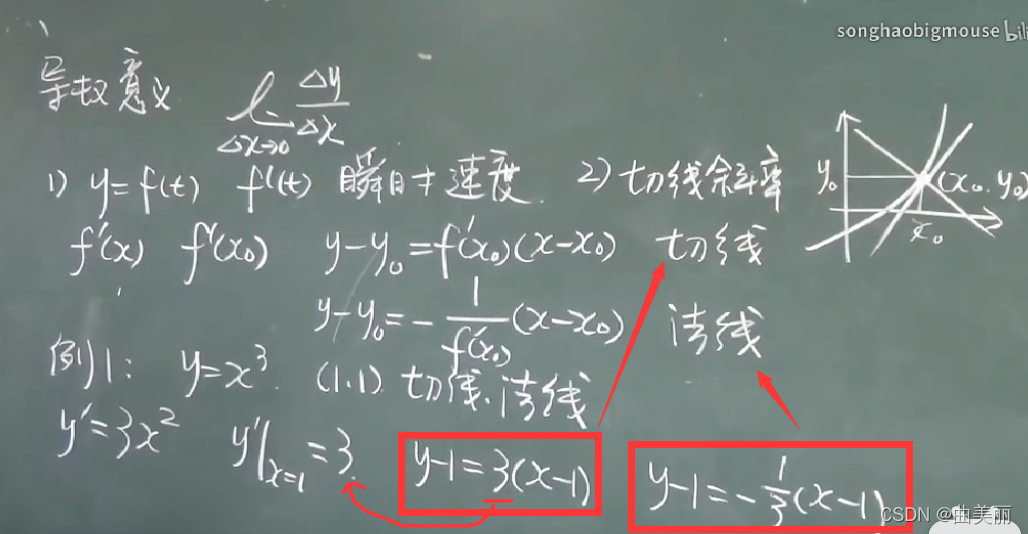 songhaobigmouse bili
导数意义 lim Δx→0 Δy/Δx
1) y=f(t) f'(t) 瞬时速度 2) 切线斜率
y₀ (x₀, y₀) x₀
f'(x) f'(x₀) y-y₀=f'(x₀)(x-x₀) 切线
y-y₀=-1/f'(x₀)(x-x₀) 法线
例1: y=x³. (1.1) 切线、法线
y'=3x² y'|x=1=3. y-1=3(x-1) y-1=-1/3(x-1)
CSDN @曲美丽